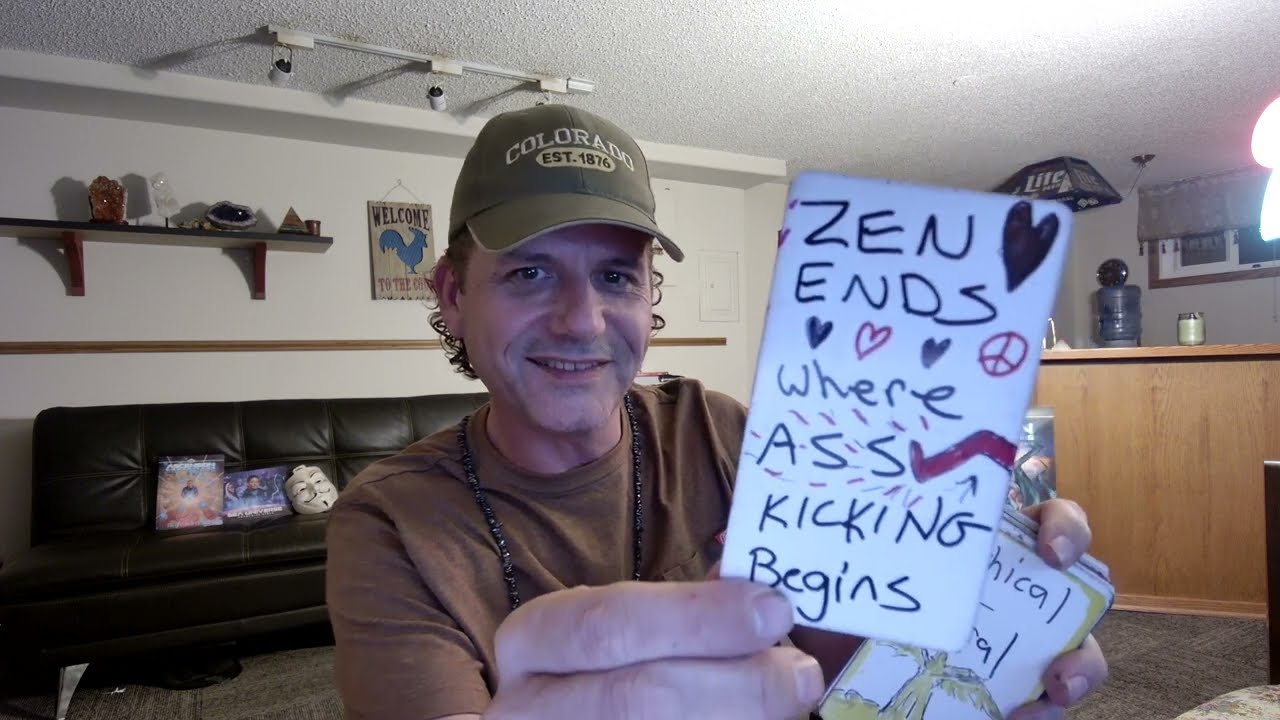 COLORADO
EST. 1876
WELCOME
TO THE
Lite
ZEN
ENDS
where
ASS
KICKING
Begins
hical